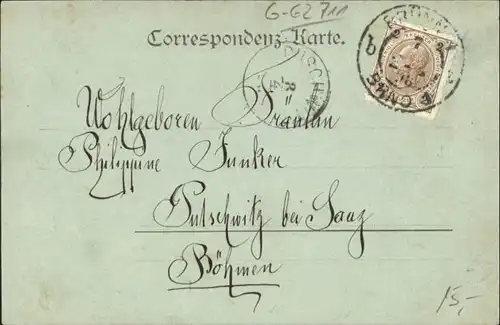 G-62711
Correspondenz-Karte.
Wohlgeboren Fräulein
Philippine Junker
Putschwitz bei Saaz
Böhmen
15,-